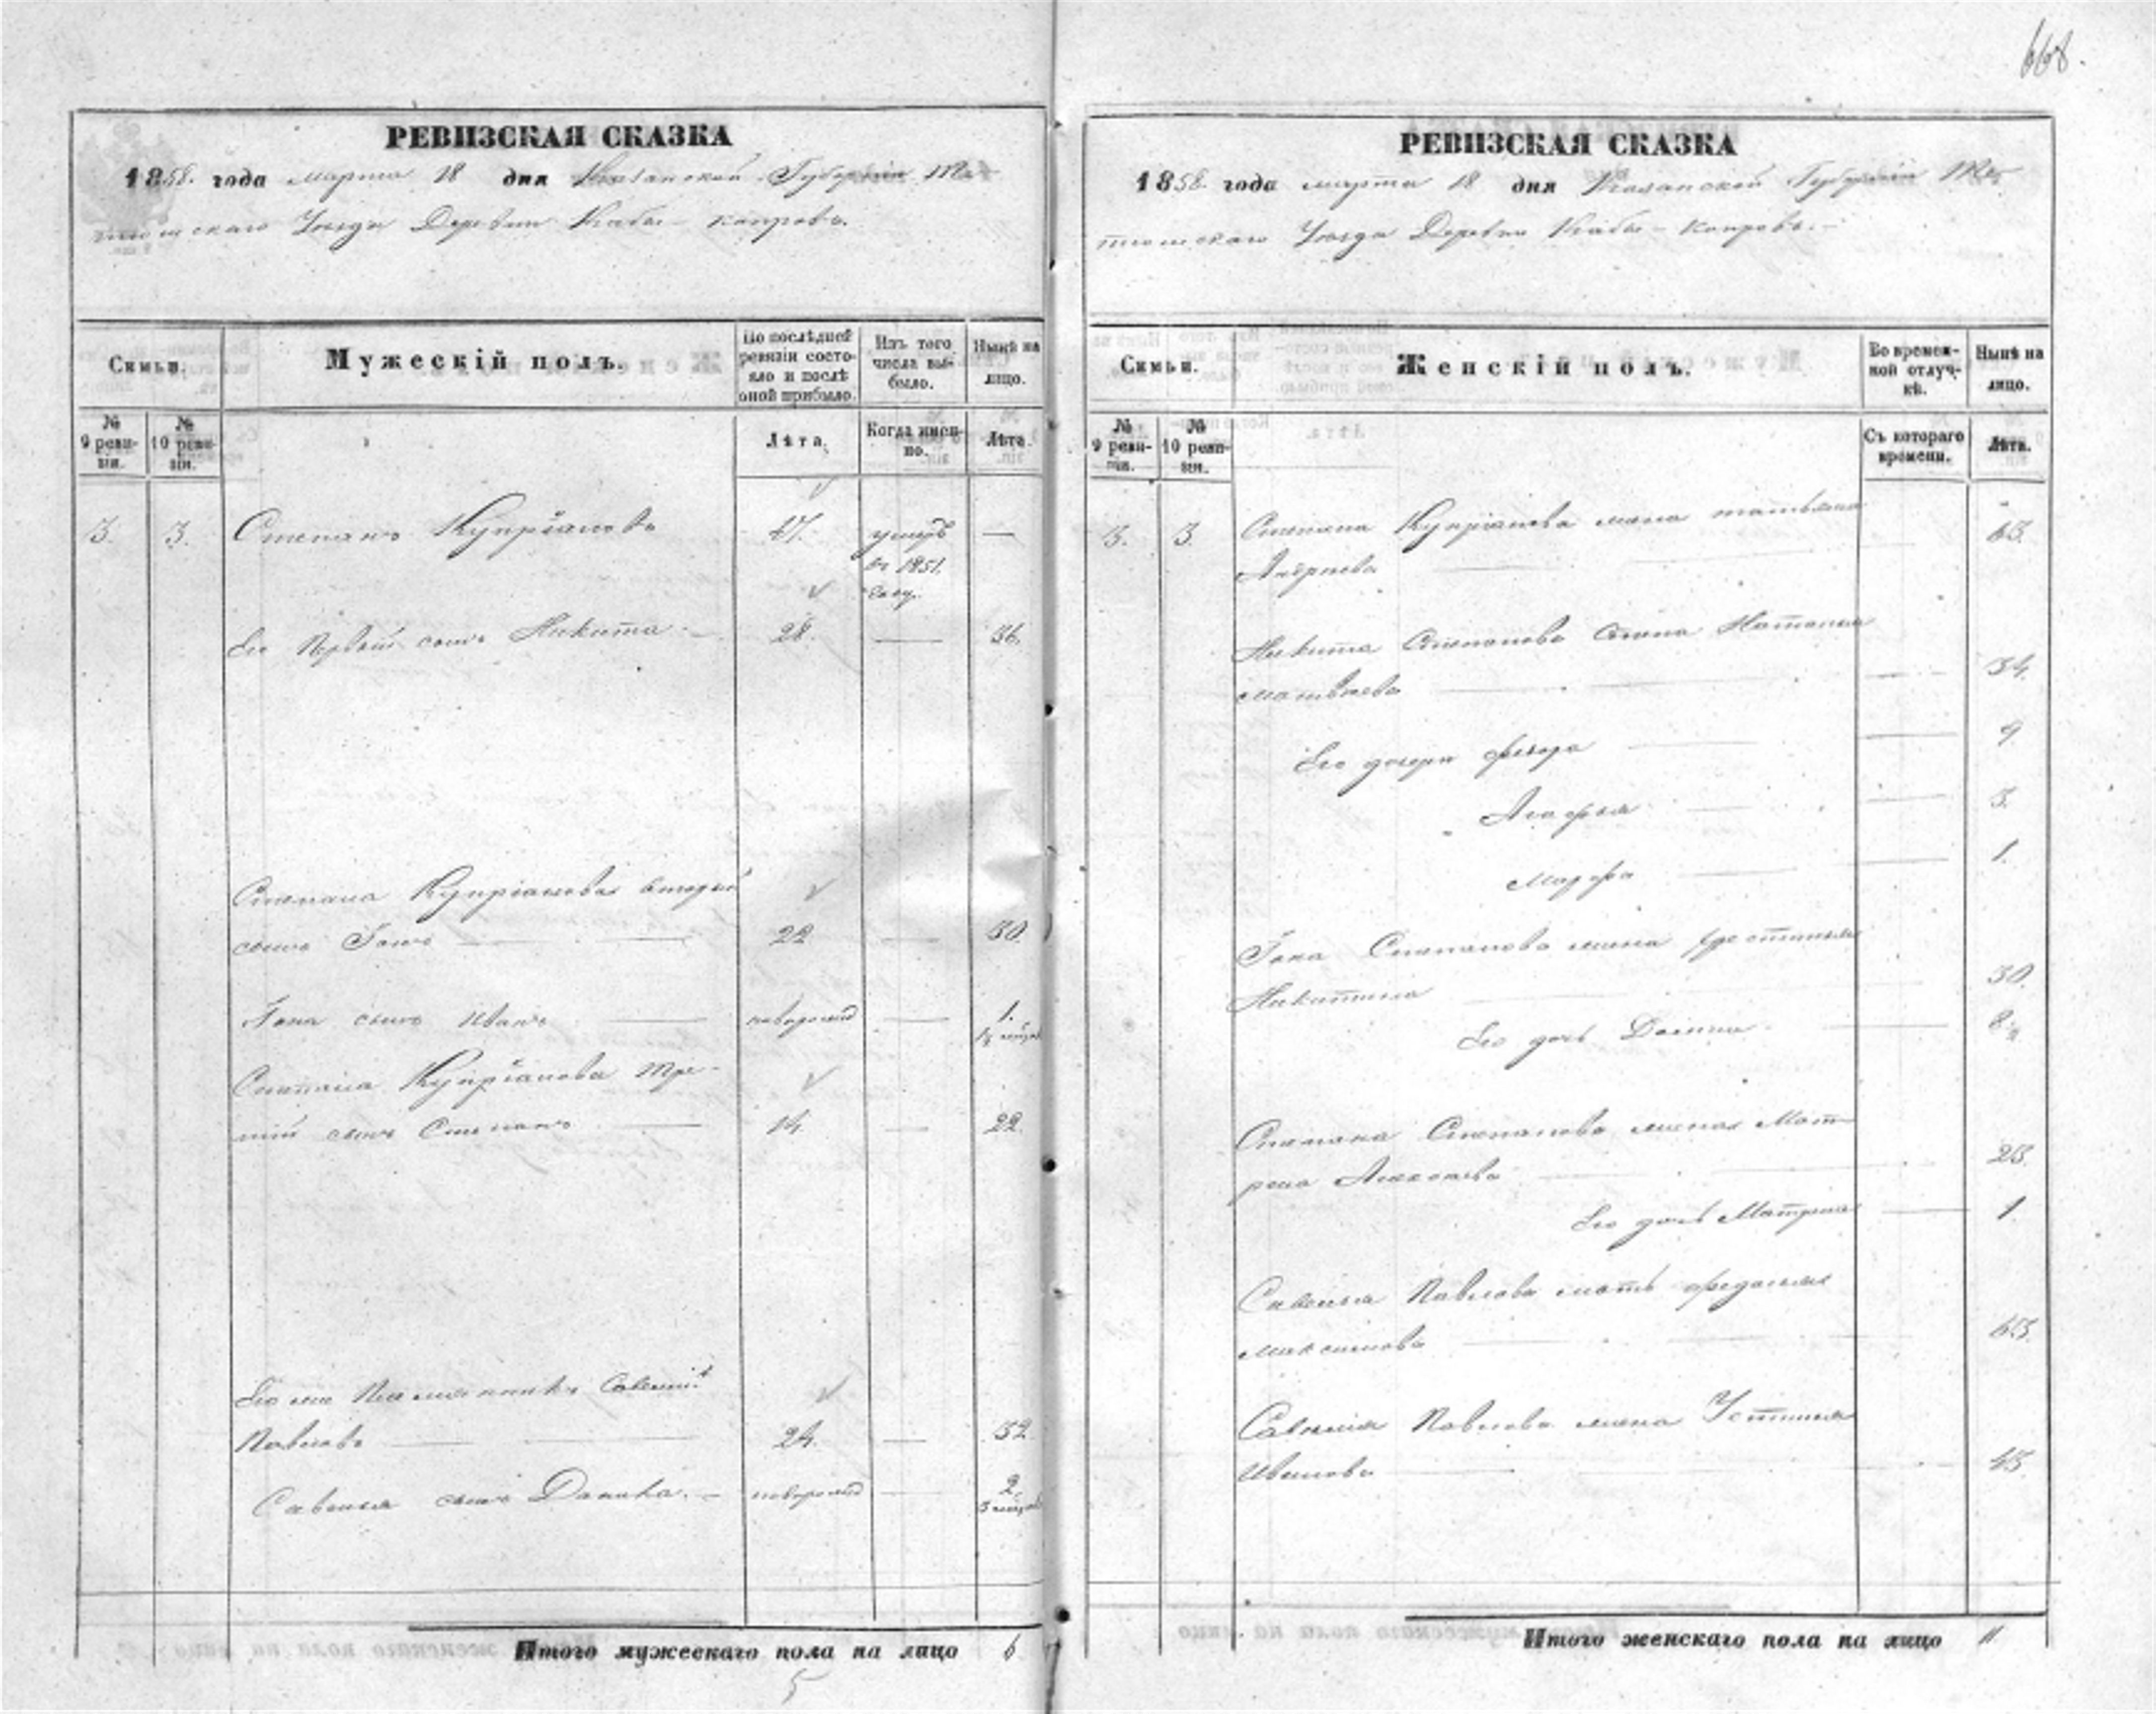 668.
РЕВИЗСКАЯ СКАЗКА
1858. года марта 18 дня Казанской Губернии Те-
тюшскаго Уезда Деревни Кабы-копровъ.
Семьи.
Мужескій полъ.
По послѣдней ревизіи состояло и послѣ оной прибыло.
Изъ того числа выбыло.
Нынѣ на лицо.
№ 9 ревизіи.
№ 10 ревизіи.
Лѣта.
Когда именно.
Лѣта.
3. 3. Степанъ Купріановъ 47. умеръ —
въ 1851.
году.
Его Первый сынъ Никита 28. — 36.
Степана Купріанова вторый
сынъ Іонъ 22 — 30.
Іона сынъ Иванъ новорожд — 1.
Степана Купріанова тре-
тій сынъ Степанъ 14. — 22.
Его же Племянникъ Савелій
Павловъ 24. — 32.
Савелья сынъ Данила. новорожд — 2.
Итого мужескаго пола на лицо 6
5
РЕВИЗСКАЯ СКАЗКА
1858. года марта 18 дня Казанской Губерніи Те-
тюшскаго Уезда Деревни Кабы-копровъ.
Семьи.
Женскій полъ.
Во временной отлучкѣ.
Нынѣ на лицо.
№ 9 ревизіи.
№ 10 ревизіи.
Съ котораго времени.
Лѣта.
3. 3. Степана Купріанова жена татьяна
Андреева 63.
Никита Степанова жена Наталья
матвѣева 34.
Его дочери 9
Агафья 3.
Марфа 1.
Іона Степанова жена
Никитина 30.
Его дочь 8.
Степана Степанова жена Мат-
рена 23.
Его дочь Матрена 1.
Савелья Павлова мать федосья
максимова 63.
Савелія Павлова жена Устинья
Иванова
Итого женскаго пола на лицо 11